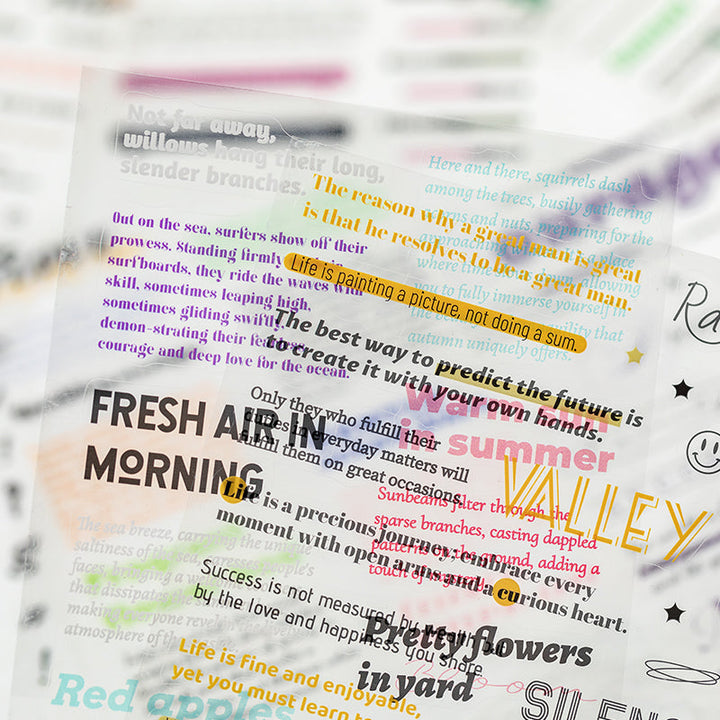 Not far away,
willows hang their long,
slender branches.
Here and there, squirrels dash
among the trees, busily gathering
acorns and nuts, preparing for the
approaching winter. It is a place
where time slows down, allowing
you to fully immerse yourself in
the beauty and tranquility that
autumn uniquely offers.
The reason why a great man is great
is that he resolves to be a great man.
Out on the sea, surfers show off their
prowess. Standing firmly
surfboards, they ride the waves with
skill, sometimes leaping high,
sometimes gliding swiftly,
demon-strating their fearless
courage and deep love for the ocean.
Life is painting a picture, not doing a sum.
The best way to predict the future is
to create it with your own hands.
Warm sun
in summer
FRESH AIR IN
MORNING
Only they who fulfill their
duties in everyday matters will
fulfill them on great occasions.
VALLEY
Life is a precious journey; embrace every
moment with open arms and a curious heart.
Sunbeams filter through the
sparse branches, casting dappled
patterns on the ground, adding a
touch of
The sea breeze, carrying the unique
saltiness of the sea, caresses people's
faces, bringing a
that dissipates the
making everyone revel in the
atmosphere of the
Success is not measured by wealth but
by the love and happiness you share
Pretty flowers
in yard
Life is fine and enjoyable,
yet you must learn to
Red apples
SILENC
Ra